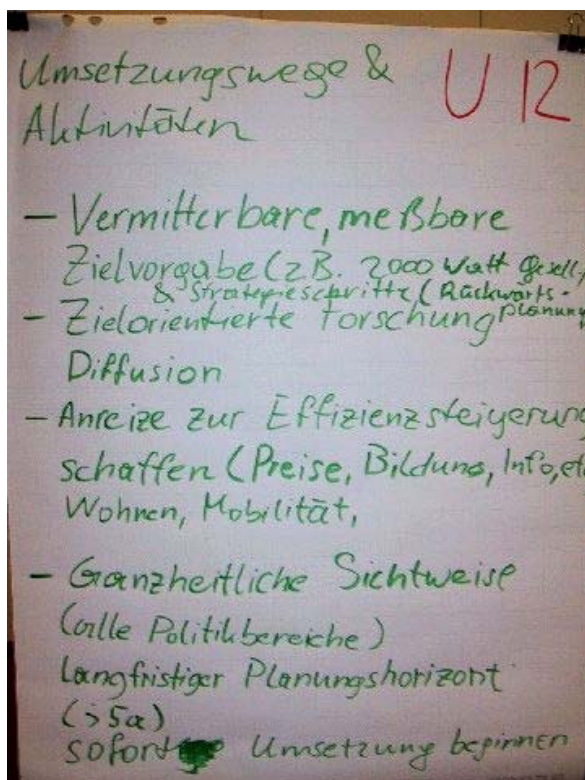 Umsetzungswege & U 12
Aktivitäten
- Vermittelbare, meßbare
Zielvorgabe (zB. 2000 Watt Gesell
& Strategieschritte (Rückwärts-
planung
- Zielorientierte Forschung
Diffusion
- Anreize zur Effizienzsteigerung
schaffen (Preise, Bildung, Info, etc
Wohnen, Mobilität,
- Ganzheitliche Sichtweise
(alle Politikbereiche)
langfristiger Planungshorizont
(>5a)
sofort Umsetzung beginnen